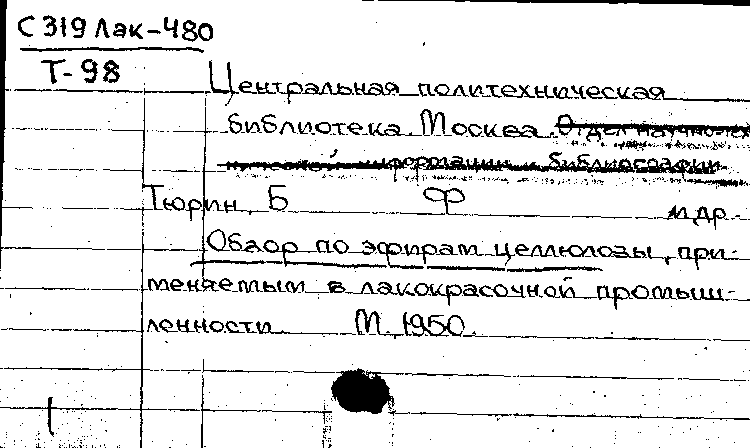 С 319 Лак-480
Т-98
Центральная политехническая
библиотека. Москва. Отдел научно-тех
нической информации и библиографии.
Тюрин, Б Ф и др.
Обзор по эфирам целлюлозы, при-
меняемым в лакокрасочной промыш-
ленности. М. 1950.